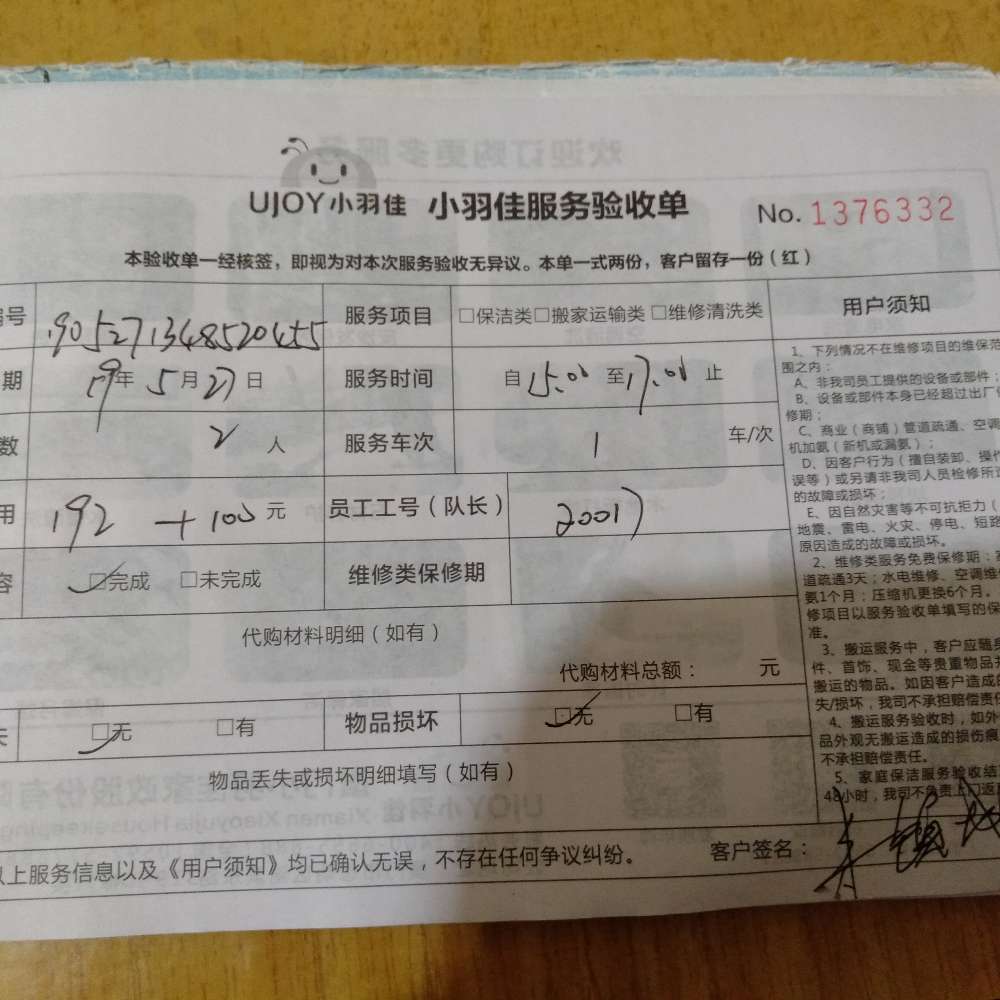 UJOY小羽佳 小羽佳服务验收单 No. 1376332
本验收单一经核签，即视为对本次服务验收无异议。本单一式两份，客户留存一份（红）
编号 1905271348520455 服务项目 □保洁类□搬家运输类 □维修清洗类
期 19年 5月27日 服务时间 自15:00 至17:00 止
数 2 人 服务车次 1 车/次
用 192 +100 元 员工工号（队长） 20017
容 □完成 □未完成 维修类保修期
代购材料明细（如有）
代购材料总额： 元
失 □无 □有 物品损坏 □无 □有
物品丢失或损坏明细填写（如有）
以上服务信息以及《用户须知》均已确认无误，不存在任何争议纠纷。 客户签名：
用户须知
1、下列情况不在维修项目的维保范
围之内：
A、非我司员工提供的设备或部件；
B、设备或部件本身已经超过出厂
修期；
C、商业（商铺）管道疏通、空调
机加氨（新机或漏氨）；
D、因客户行为（擅自装卸、操作
误等）或另请非我司人员检修所
的故障或损坏；
E、因自然灾害等不可抗拒力（
地震、雷电、火灾、停电、短路
原因造成的故障或损坏。
2、维修类服务免费保修期：
道疏通3天；水电维修、空调维
氨1个月；压缩机更换6个月。
修项目以服务验收单填写的保
准。
3、搬运服务中，客户应随身
件、首饰、现金等贵重物品
搬运的物品。如因客户造成的
失/损坏，我司不承担赔偿责任
4、搬运服务验收时，如外
品外观无搬运造成的损伤痕
不承担赔偿责任。
5、家庭保洁服务验收结
48小时，我司不负责上门返